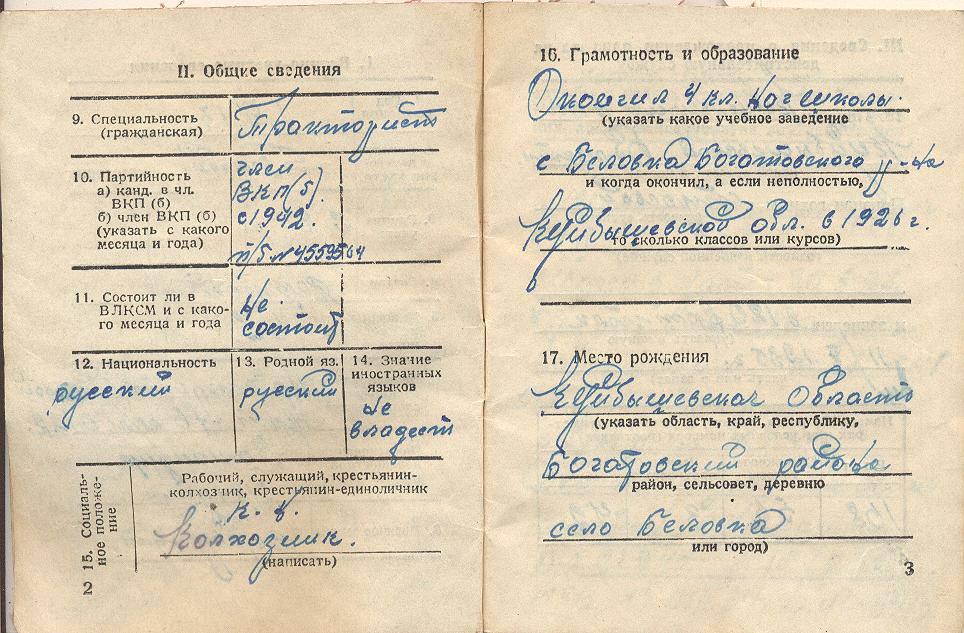 II. Общие сведения
9. Специальность
(гражданская)
Тракторист
10. Партийность
а) канд. в чл.
ВКП (б)
б) член ВКП (б)
(указать с какого
месяца и года)
член
ВКП(б).
с 1942.
п/б. № 4559564
11. Состоит ли в
ВЛКСМ и с како-
го месяца и года
не
состоит
12. Национальность
русский
13. Родной яз.
русский
14. Знание
иностранных
языков
не
владеет
15. Социаль-
ное положе-
ние
Рабочий, служащий, крестьянин-
колхозник, крестьянин-единоличник
Колхозник.
(написать)
2
16. Грамотность и образование
Окончил 4 кл. нач школы.
(указать какое учебное заведение
с Беловка Богатовского р-на
и когда окончил, а если неполностью,
Куйбышевской обл. в 1926 г.
то сколько классов или курсов)
17. Место рождения
Куйбышевская область
(указать область, край, республику,
Богатовский района
район, сельсовет, деревню
село Беловка
или город)
3